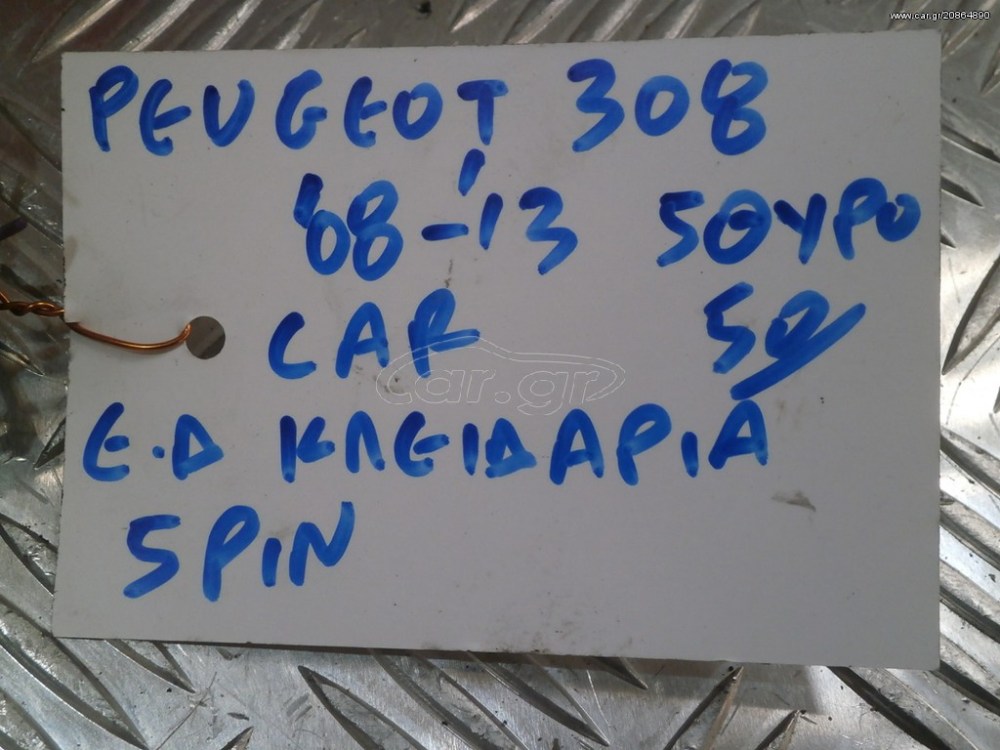 www.car.gr/20864890
PEUGEOT 308
'08-'13 5ΘΥΡΟ
CAR 50
Ε.Δ ΚΛΕΙΔΑΡΙΑ
5 PIN
car.gr